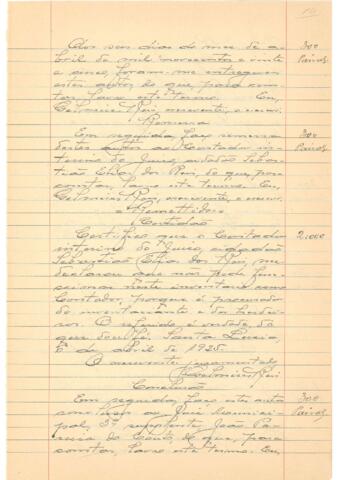 Aos seis dias do mez de a-
bril de mil novecentos e vinte
e cinco, foram-me entregues
estes autos, do que, para cons-
tar, lavro este termo. Eu,
Reis, escrevente, o escrevi.
Remessa
Em seguida, faço remessa
destes autos ao Contador in-
terino do Juizo, cidadão Sebas-
tião Elias dos Reis, do que, para
constar, lavro este termo. Eu,
Reis, escrevente, o escrevi.
Remettidos
Certidão
Certifico que o Contador
interino do Juizo, cidadão
Sebastião Elias dos Reis, me
declarou que não pode func-
cionar neste inventario como
Contador, porque é procurador
do inventariante e dos herdei-
ros. O referido é verdade, do
que dou fé. Santa Luzia,
6 de abril de 1925.
O escrevente juramentado,
Reis
Conclusão
Em seguida, faço estes autos
conclusos ao Juiz munici-
pal, 3º supplente, João Pe-
reira do Couto, do que, para
constar, lavro este termo. Eu,
300
300
2.000
300